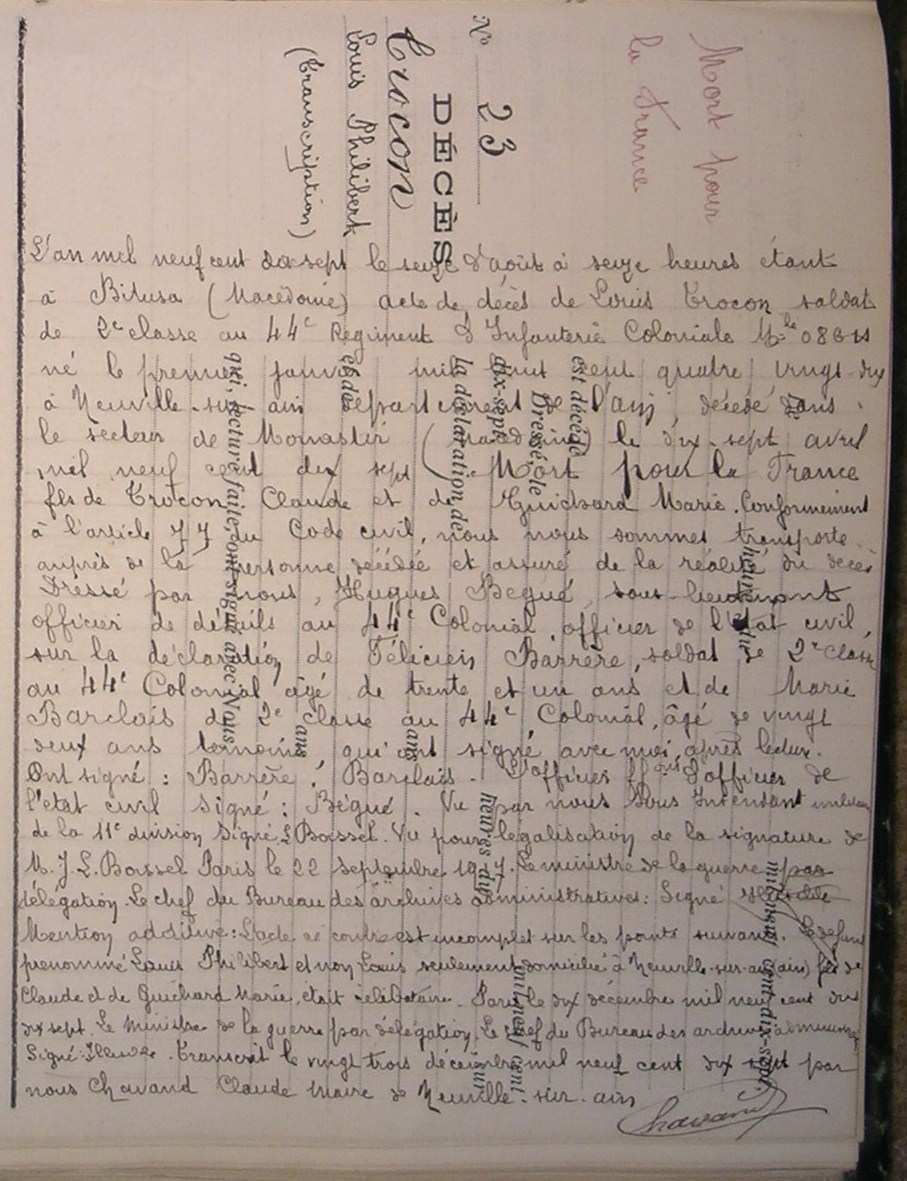 Mort pour
la France
N° 23
DÉCÈS
Trocon
Louis Philibert
(Transcription)
L'an mil neuf cent dix sept le seize d'août à seize heures étant
à Bitusa (Macedonie) acte de décès de Louis Trocon, soldat
de 2e classe au 44e Régiment d'Infanterie Coloniale Mle
né le premier janvier mil huit cent quatre vingt-dix
à Neuville-sur-ain département de l'ain, décédé dans
le secteur de Monastir (Macedoine) le dix-sept avril
mil neuf cent dix sept. Mort pour la France
fils de Trocon Claude et de Guichard Marie. Conformément
à l'article 77 du Code civil, nous nous sommes transporté
auprès de la personne décédée et assuré de la réalité du décès
Dressé par nous, Hugues Bégué, sous-lieutenant
officier de détails au 44e Colonial, officier de l'état civil,
sur la déclaration de Félicien Barrère, soldat de 2e classe
au 44e Colonial âgé de trente et un ans et de Marie
Barclais de 2e classe au 44e Colonial, âgé de vingt
deux ans témoins qui ont signé avec moi après lecture.
Ont signé: Barrère, Barclais. L'officier ff d'officier de
l'état civil signé: Bégué. Vu par nous Sous Intendant militaire
de la 11e division Signé: Boissel. Vu pour légalisation de la signature de
M. J. L. Boissel Paris le 22 septembre 1917. Le ministre de la guerre par
délégation. Le chef du Bureau des archives administratives: Signé
Mention additive: L'acte ci contre est incomplet sur les points suivants. Le défunt
prénommé Louis Philibert et non Louis seulement domicilié à Neuville-sur-ain (ain) fils de
Claude et de Guichard Marie, était célibataire. Paris le dix décembre mil neuf cent dix
dix sept. Le Ministre de la guerre par délégation, Le chef du Bureau des archives administratives
Signé: Transcrit le vingt trois décembre mil neuf cent dix sept par
nous Chavand Claude maire de Neuville-sur-ain
Chavand
est décédé
Dressé le
dix-sept
la déclaration de
et de
qui, lecture faite, ont signé avec Nous
ans
ans
heures du
mil neuf cent dix-sept
mil neuf cent